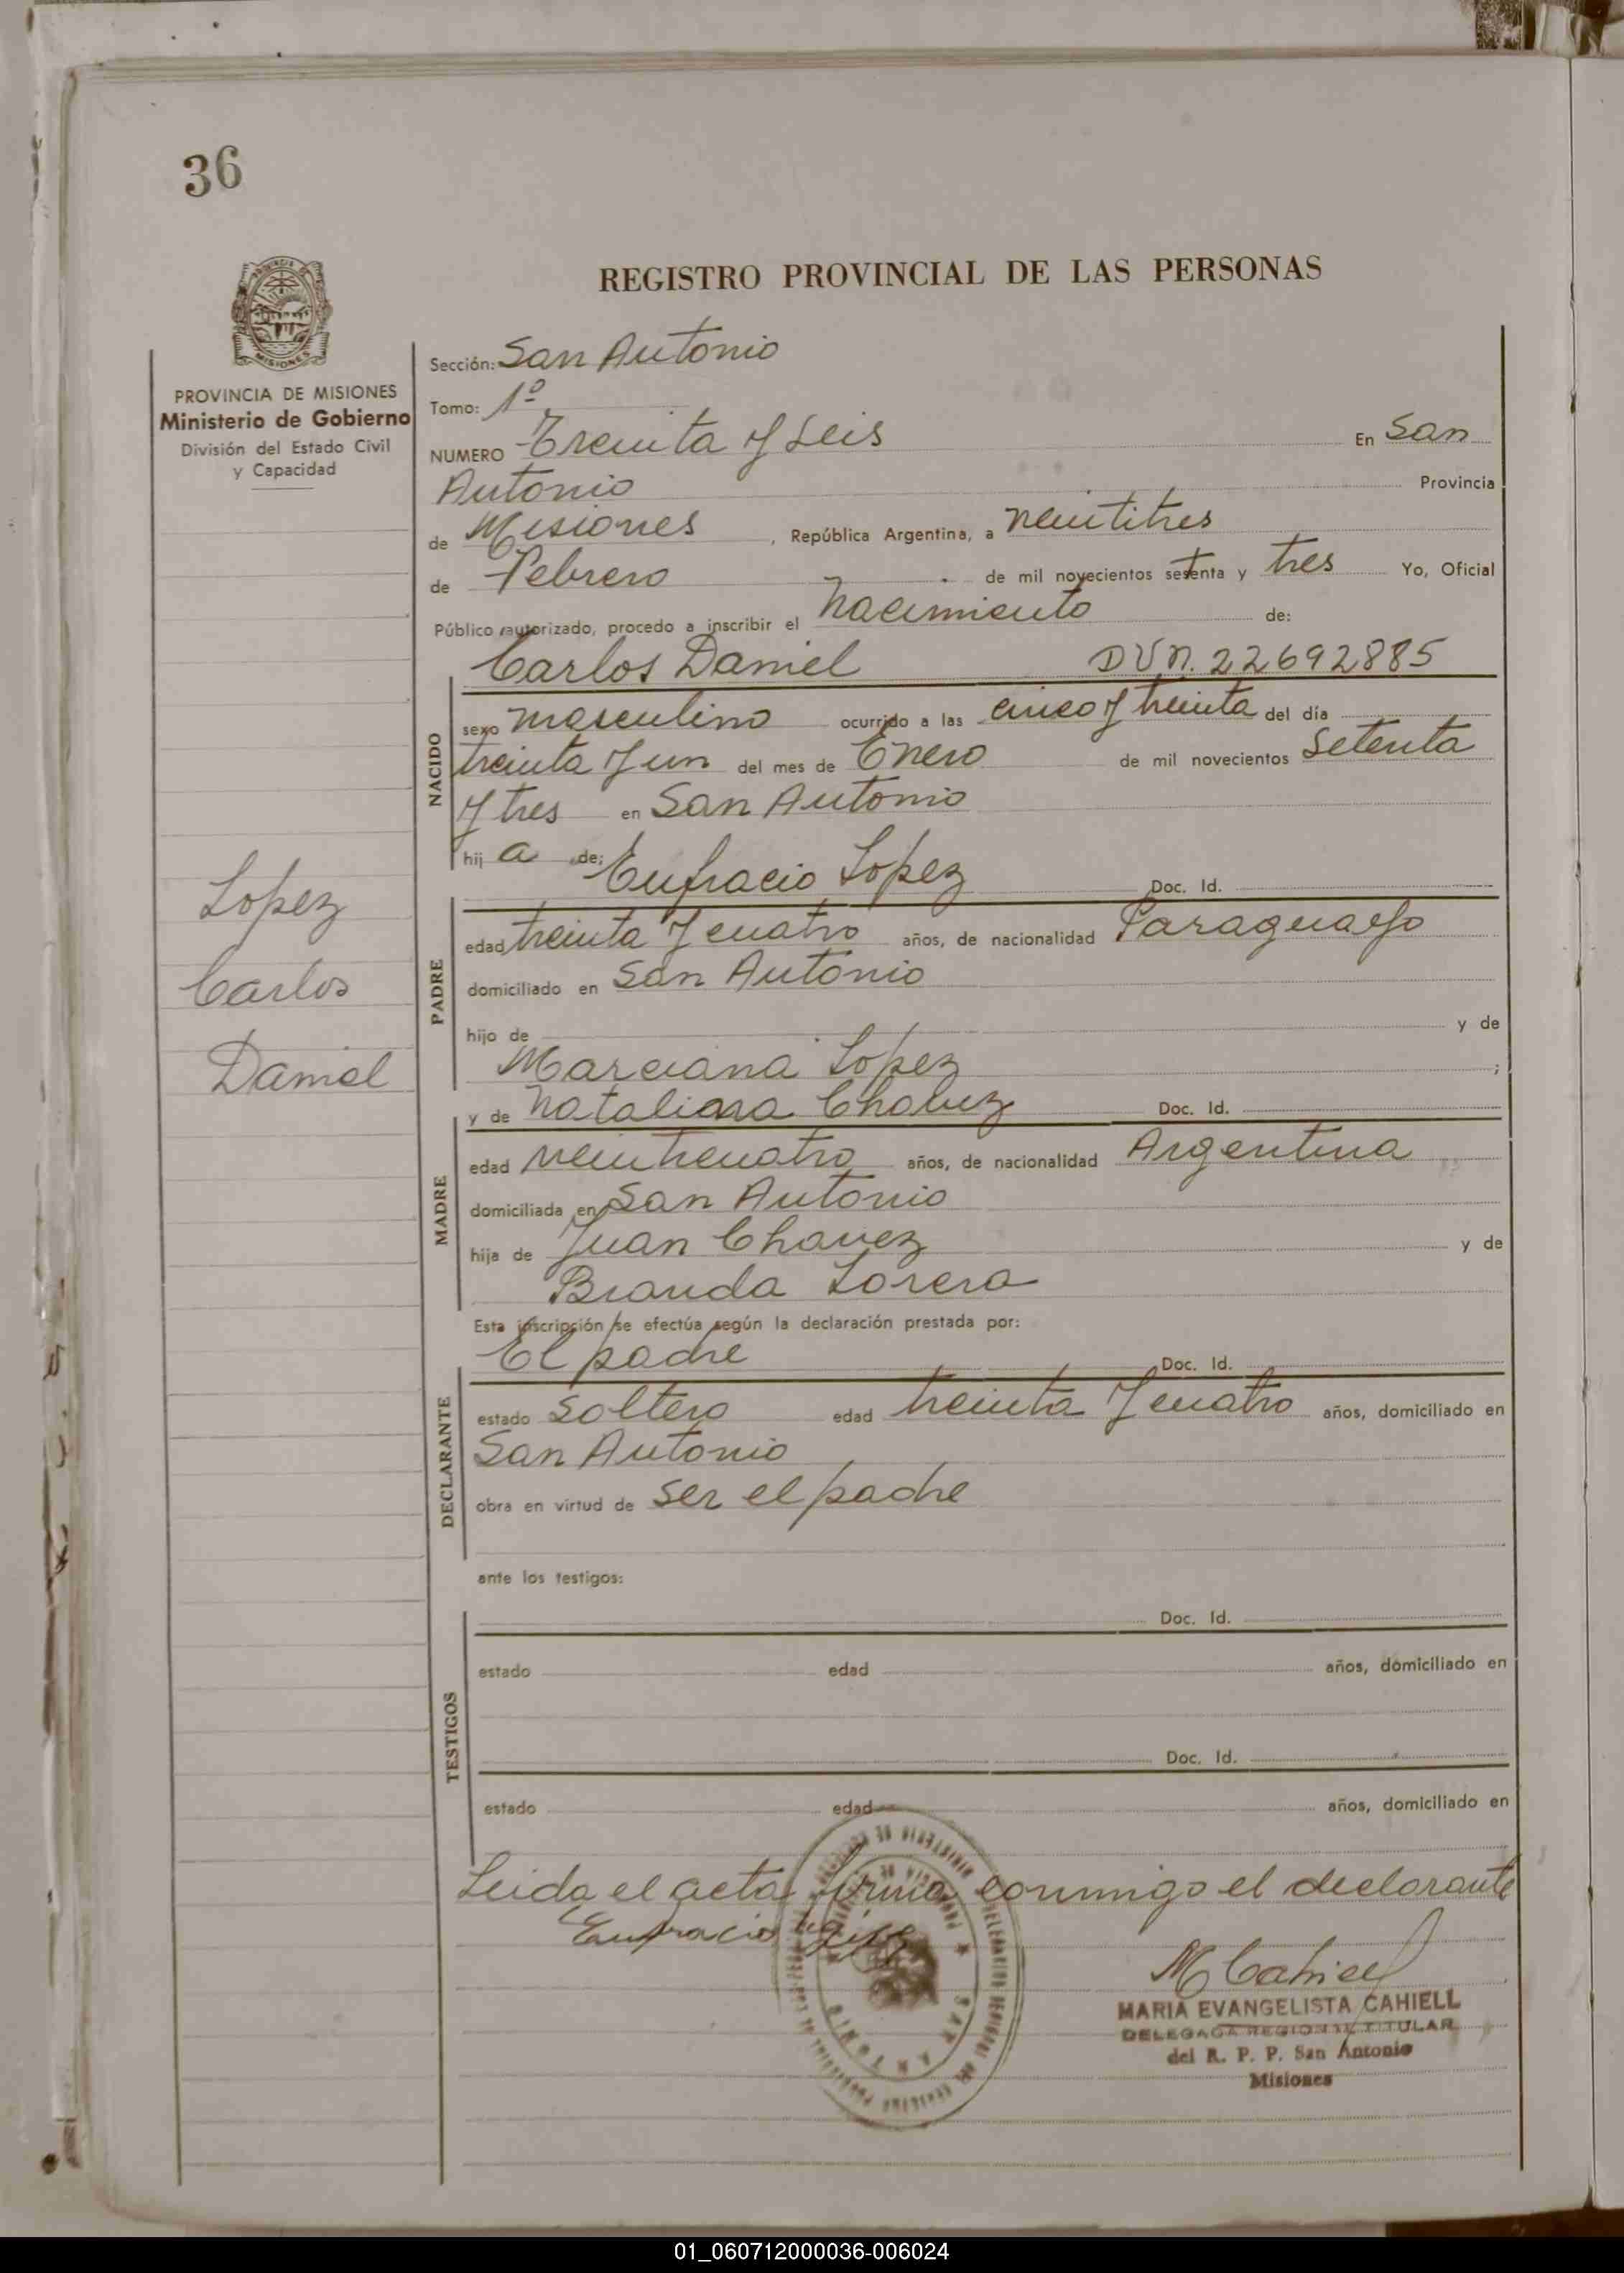 36
REGISTRO PROVINCIAL DE LAS PERSONAS
MISIONES
PROVINCIA DE MISIONES
Ministerio de Gobierno
División del Estado Civil
y Capacidad
Lopez
Carlos
Daniel
Sección: San Antonio
Tomo: 1º
NUMERO Treinta y Seis En San
Antonio Provincia
de Misiones, República Argentina, a veintitres
de Febrero de mil novecientos setenta y tres Yo, Oficial
Público autorizado, procedo a inscribir el nacimiento de:
Carlos Daniel DUN. 22692885
NACIDO
sexo masculino ocurrido a las cinco y treinta del día
treinta y un del mes de Enero de mil novecientos Setenta
y tres en San Antonio
hij a de: Eufracio Lopez Doc. Id.
PADRE
edad treinta y cuatro años, de nacionalidad Paraguayo
domiciliado en San Antonio
hijo de y de
Marciana Lopez ;
y de Nataliana Chavez Doc. Id.
MADRE
edad veinticuatro años, de nacionalidad Argentina
domiciliada en San Antonio
hija de Juan Chavez y de
Branda Lorera
Esta inscripción se efectúa según la declaración prestada por:
El padre Doc. Id.
DECLARANTE
estado Soltero edad treinta y cuatro años, domiciliado en
San Antonio
obra en virtud de Ser el padre
ante los testigos:
Doc. Id.
TESTIGOS
estado edad años, domiciliado en
Doc. Id.
estado edad años, domiciliado en
Leida el acta firma conmigo el declarante
Eufracio
M Cahiell
MARIA EVANGELISTA CAHIELL
DELEGADA REGIONAL TITULAR
del R. P. P. San Antonio
Misiones
SAN ANTONIO
01_060712000036-006024